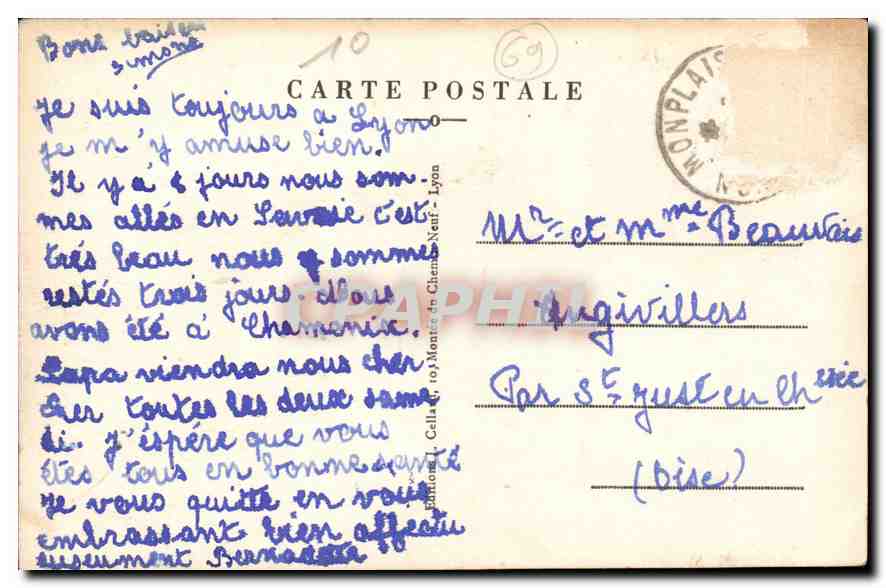 Bons baisers
Simone
10
69
CARTE POSTALE
MONPLAIS
ON
Je suis toujours a Lyon
je m'y amuse bien.
Il y a 8 jours nous som-
mes allés en Savoie c'est
très beau nous y sommes
restés trois jours. Nous
avons été à Chamonix.
Papa viendra nous cher
cher toutes les deux same
di. J'éspére que vous
êtes tous en bonne santé
Je vous quitte en vous
embrassant bien affectu
eusement Bernadette
Editions J. Cellard, 10, Montée du Chemin-Neuf - Lyon
Mr et Mme Beauvais
Angivillers
Par St Just en Chssée
(Oise)
CPAPHIL